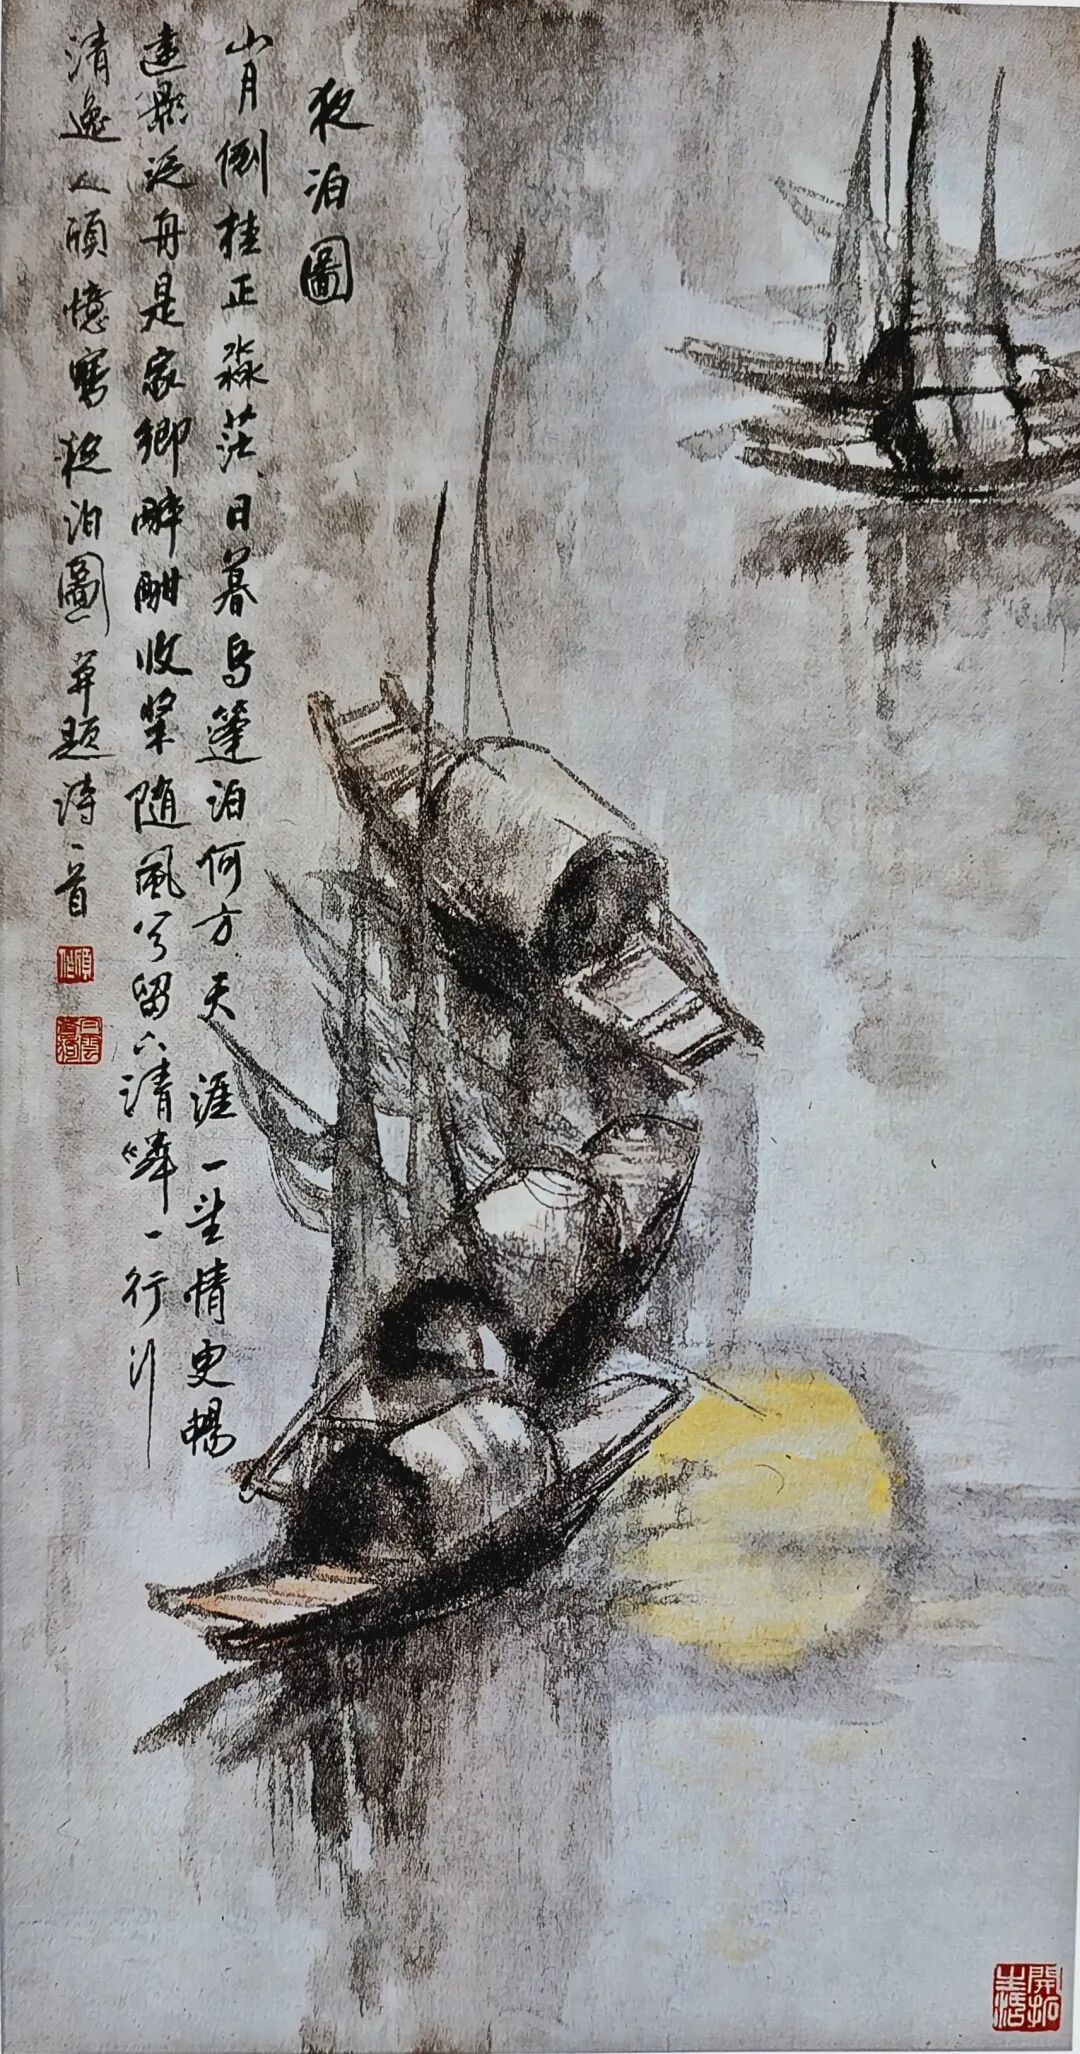 夜泊圖
山月倒挂正淼茫日暮烏篷泊何方天涯一望情更暢
遠影泛舟是家鄉醉酣收槳随風兮留下清輝一行行
清逸人憶寫夜泊圖并題詩一首
開拓生活